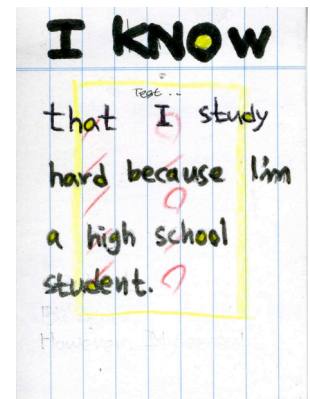 I KNOW
Test...
that I study
hard because I'm
a high school
student.